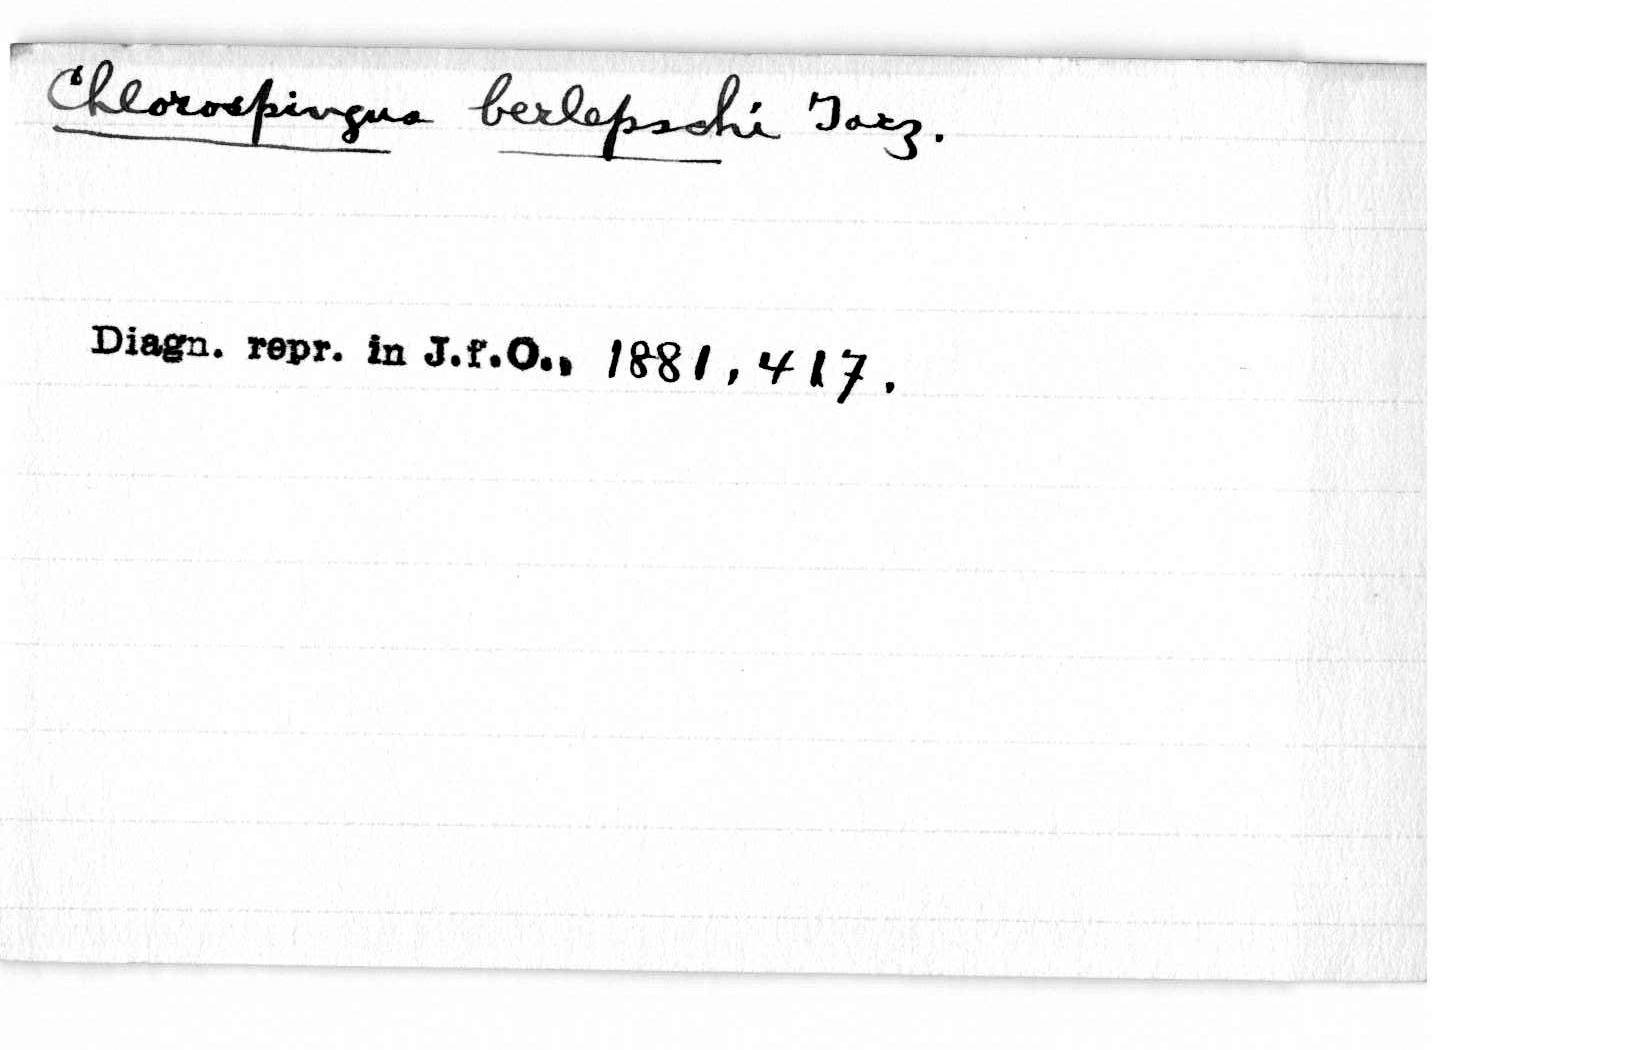 Chlorospingus berlepschi Tacz.
Diagn. repr. in J.f.O., 1881, 417.